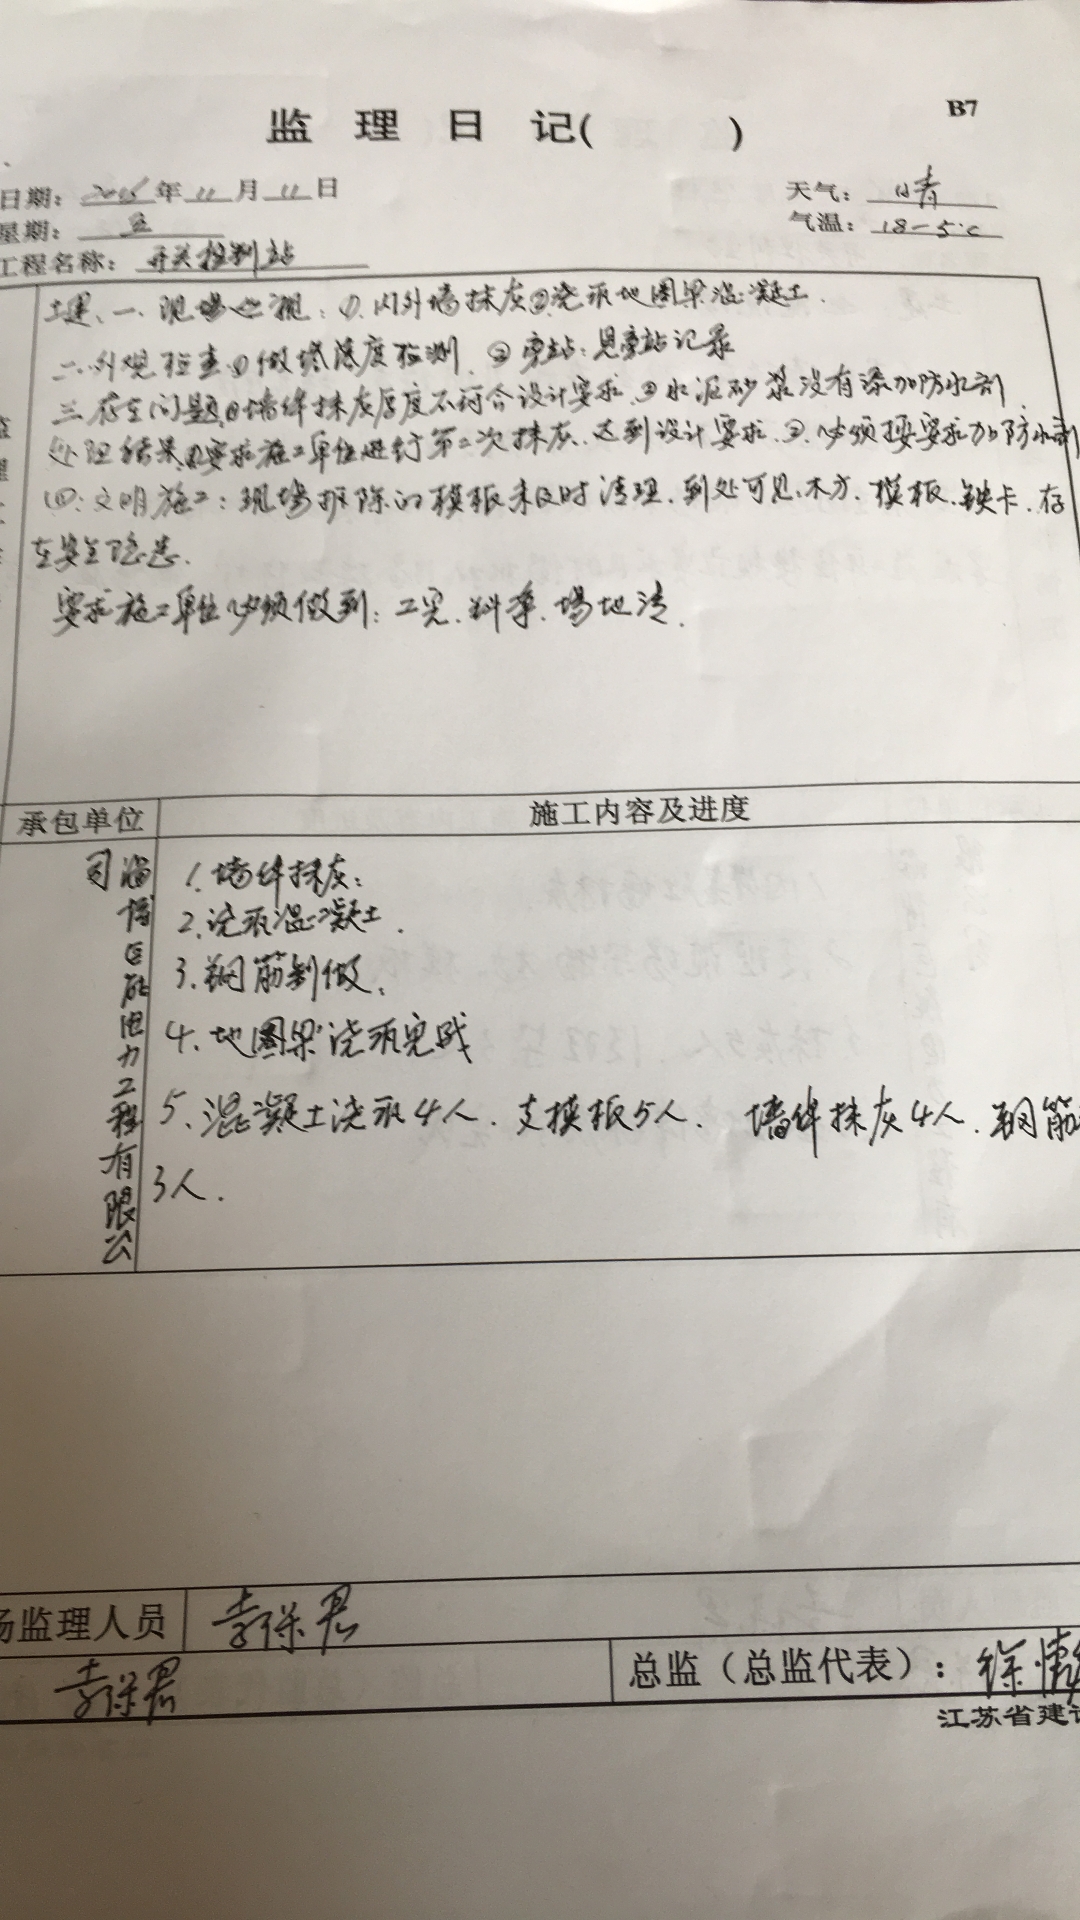 B7
监 理 日 记( )
日期: 年 11 月 11 日
天气: 晴
星期: 五
气温: 18-5℃
工程名称: 开关控制站
土建、一、现场巡视:①、内外墙抹灰②浇承地圈梁混凝土.
二.外观检查①做塌落度检测. ②旁站:见旁站记录
三.存在问题①墙体抹灰厚度不符合设计要求.②水泥砂浆没有添加防水剂.
处理结果①要求施工单位进行第二次抹灰.达到设计要求.②.必须按要求加防水剂
四:文明施工:现场拆除的模板未及时清理.到处可见.木方.模板.铁卡.存
在安全隐患.
要求施工单位必须做到:工完.料净.场地清.
承包单位
施工内容及进度
电力工程有限公司
1.墙体抹灰:
2.浇承混凝土.
3.钢筋制做.
4.地圈梁浇承完成
5、混凝土浇承4人.支模板5人. 墙体抹灰4人.钢筋
3人.
监理人员
李保君
李保君
总监(总监代表): 徐
江苏省建